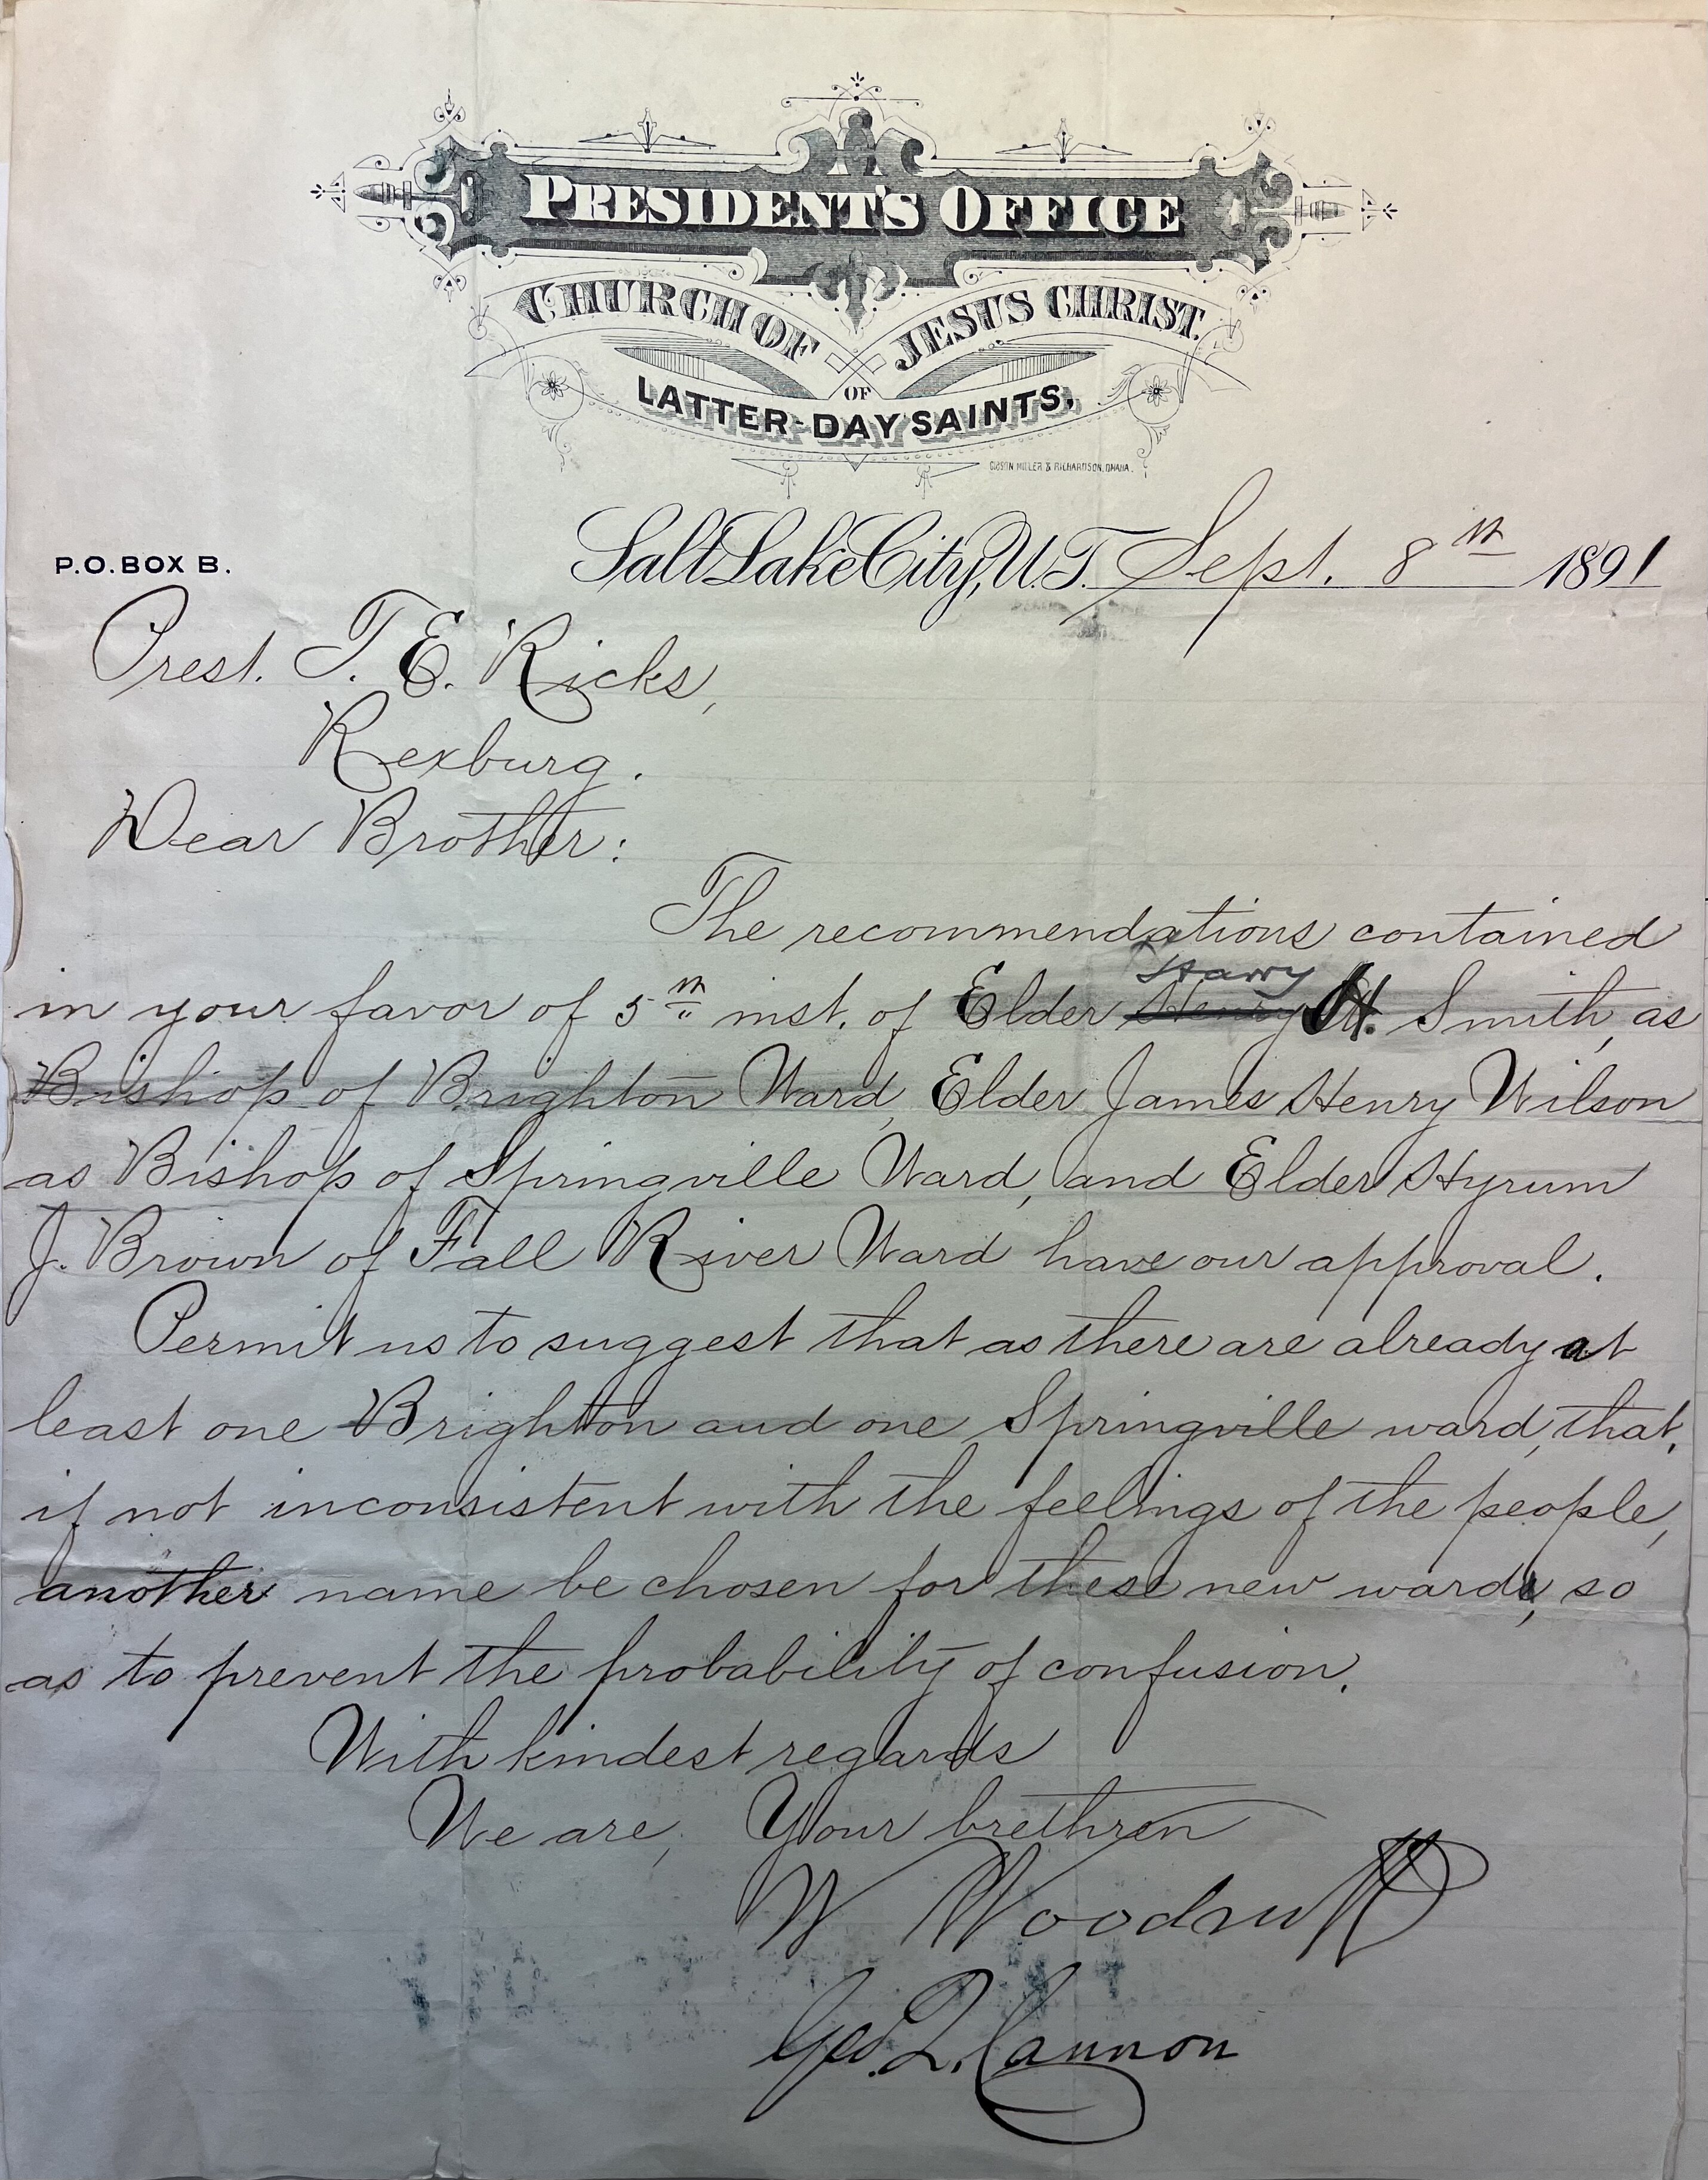 PRESIDENT'S OFFICE
CHURCH OF JESUS CHRIST.
OF
LATTER-DAY SAINTS.
GIBSON MILLER & RICHARDSON, OMAHA.
Salt Lake City, U.T. Sept. 8th 1891
P.O. BOX B.
Prest. T. E. Ricks,
Rexburg.
Dear Brother:
The recommendations contained
Harry
in your favor of 5th inst. of Elder Henry H. Smith, as
Bishop of Brighton Ward, Elder James Henry Wilson
as Bishop of Springville Ward, and Elder Hyrum
J. Brown of Fall River Ward have our approval.
Permit us to suggest that as there are already at
least one Brighton and one Springville ward, that,
if not inconsistent with the feelings of the people,
another name be chosen for these new wards, so
as to prevent the probability of confusion.
With kindest regards
We are, Your brethren
W Woodruff
Geo. Q. Cannon